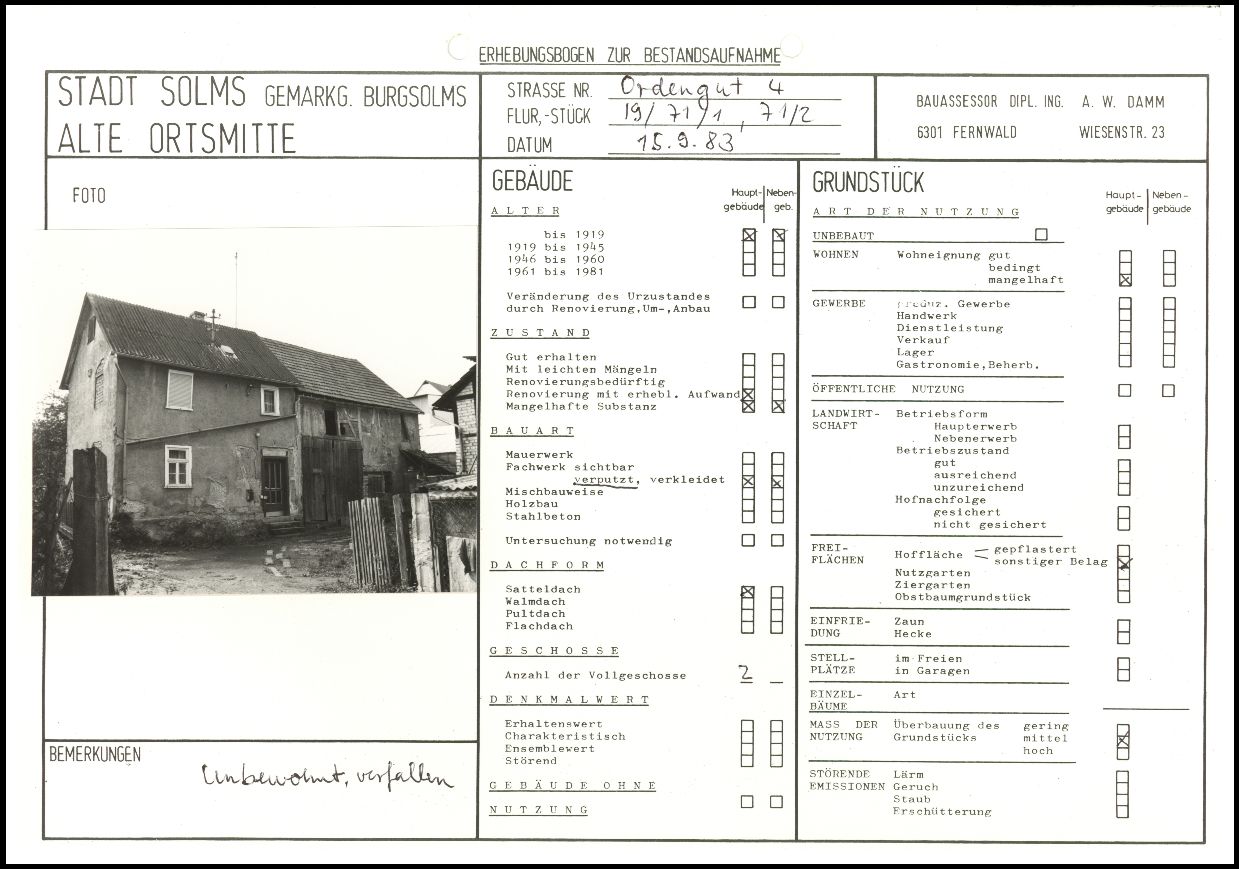 ERHEBUNGSBOGEN ZUR BESTANDSAUFNAHME
STADT SOLMS GEMARKG. BURGSOLMS
ALTE ORTSMITTE
STRASSE NR. Ordengut 4
FLUR,-STÜCK 19/ 71/1, 71/2
DATUM 15.9.83
BAUASSESSOR DIPL. ING. A. W. DAMM
6301 FERNWALD WIESENSTR. 23
FOTO
BEMERKUNGEN
Unbewohnt, verfallen
GEBÄUDE
Haupt- Neben-
gebäude geb.
ALTER
bis 1919
1919 bis 1945
1946 bis 1960
1961 bis 1981
Veränderung des Urzustandes
durch Renovierung,Um-,Anbau
ZUSTAND
Gut erhalten
Mit leichten Mängeln
Renovierungsbedürftig
Renovierung mit erhebl. Aufwand
Mangelhafte Substanz
BAUART
Mauerwerk
Fachwerk sichtbar
verputzt, verkleidet
Mischbauweise
Holzbau
Stahlbeton
Untersuchung notwendig
DACHFORM
Satteldach
Walmdach
Pultdach
Flachdach
GESCHOSSE
Anzahl der Vollgeschosse 2
DENKMALWERT
Erhaltenswert
Charakteristisch
Ensemblewert
Störend
GEBÄUDE OHNE
NUTZUNG
GRUNDSTÜCK
Haupt- Neben-
gebäude gebäude
ART DER NUTZUNG
UNBEBAUT
WOHNEN Wohneignung gut
bedingt
mangelhaft
GEWERBE Gewerbe
Handwerk
Dienstleistung
Verkauf
Lager
Gastronomie,Beherb.
ÖFFENTLICHE NUTZUNG
LANDWIRT- Betriebsform
SCHAFT Haupterwerb
Nebenerwerb
Betriebszustand
gut
ausreichend
unzureichend
Hofnachfolge
gesichert
nicht gesichert
FREI- gepflastert
FLÄCHEN Hoffläche sonstiger Belag
Nutzgarten
Ziergarten
Obstbaumgrundstück
EINFRIE- Zaun
DUNG Hecke
STELL- im Freien
PLÄTZE in Garagen
EINZEL- Art
BÄUME
MASS DER Überbauung des gering
NUTZUNG Grundstücks mittel
hoch
STÖRENDE Lärm
EMISSIONEN Geruch
Staub
Erschütterung